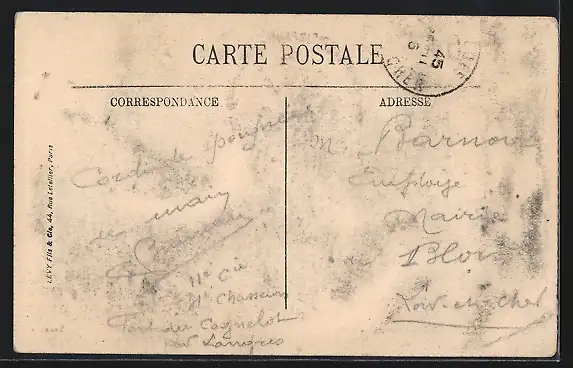 CARTE POSTALE
CORRESPONDANCE
ADRESSE
LEVY Fils & Cie, 44, Rue Letellier, Paris
45
CHER
Cordiale poignée
de main
11e Cie
Chasseurs
Fort du Cognelot
par Langres
M Barnou
Employé
Mairie
Blois
Loir-et-Cher